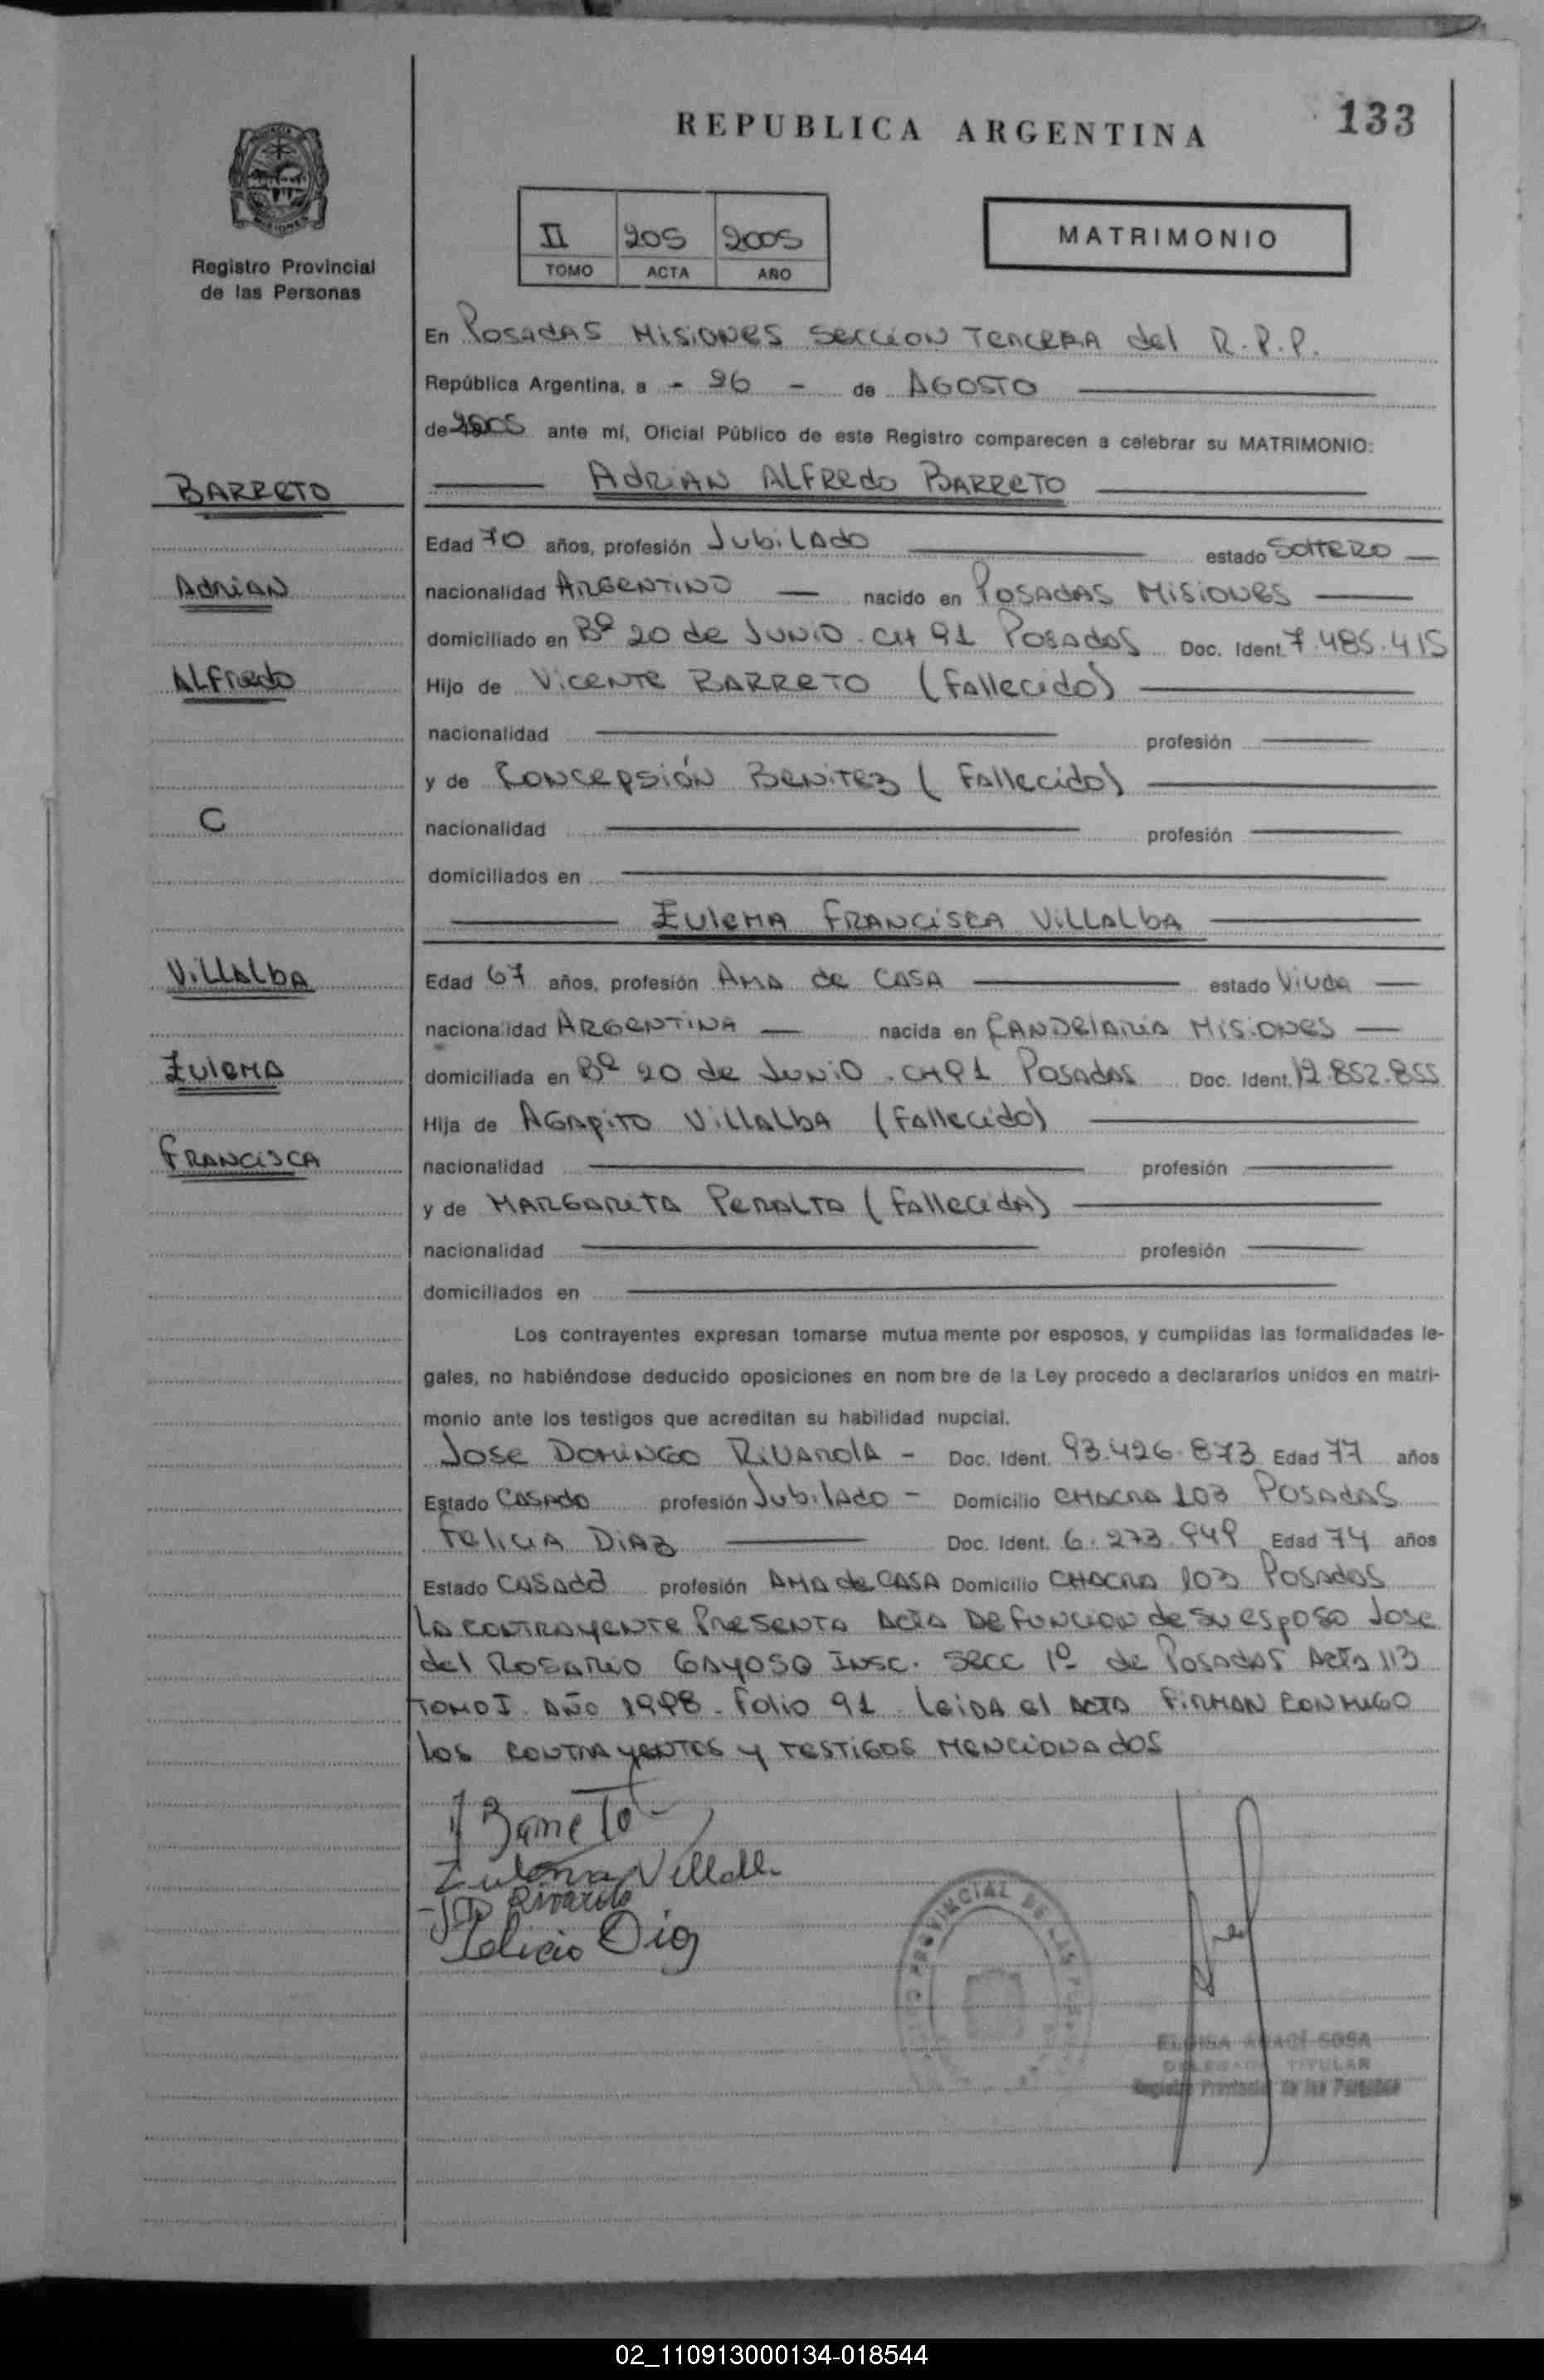 REPUBLICA ARGENTINA
133
Registro Provincial
de las Personas
II 205 2005
TOMO ACTA AÑO
MATRIMONIO
En Posadas Misiones Seccion Tercera del R.P.P.
República Argentina, a - 26 - de AGOSTO
de 2005 ante mí, Oficial Público de este Registro comparecen a celebrar su MATRIMONIO:
BARRETO
Adrian Alfredo Barreto
Edad 70 años, profesión Jubilado estado Soltero
Adrian
nacionalidad Argentino nacido en Posadas Misiones
domiciliado en Bº 20 de Junio. CH 91 Posadas Doc. Ident. 7.485.415
Alfredo
Hijo de Vicente Barreto (Fallecido)
nacionalidad profesión
y de Concepsión Benitez (Fallecido)
C
nacionalidad profesión
domiciliados en
Zulema Francisca Villalba
Villalba
Edad 67 años, profesión Ama de casa estado Viuda
nacionalidad Argentina nacida en Candelaria Misiones
Zulema
domiciliada en Bº 20 de Junio. CH91 Posadas Doc. Ident. 12.852.855
Hija de Agapito Villalba (Fallecido)
Francisca
nacionalidad profesión
y de Margarita Peralta (Fallecida)
nacionalidad profesión
domiciliados en
Los contrayentes expresan tomarse mutua mente por esposos, y cumplidas las formalidades le-
gales, no habiéndose deducido oposiciones en nom bre de la Ley procedo a declararlos unidos en matri-
monio ante los testigos que acreditan su habilidad nupcial.
Jose Domingo Rivarola - Doc. Ident. 93.426.873 Edad 77 años
Estado Casado profesión Jubilado - Domicilio Chacra 103 Posadas
Felicia Diaz Doc. Ident. 6.273.949 Edad 74 años
Estado Casada profesión Ama de casa Domicilio Chacra 103 Posadas
La contrayente presenta acta defuncion de su esposo Jose
del Rosario Gayoso Insc. Secc 1º de Posadas Acta 113
Tomo I Año 1998. Folio 91. Leida el acta firman conmigo
los contrayentes y testigos mencionados
Barreto
Zulema Villalb
JD Rivarola
Felicia Diaz
PROVINCIAL DE LAS
SOSA
TITULAR
Registro Provincial de las Personas
02_110913000134-018544